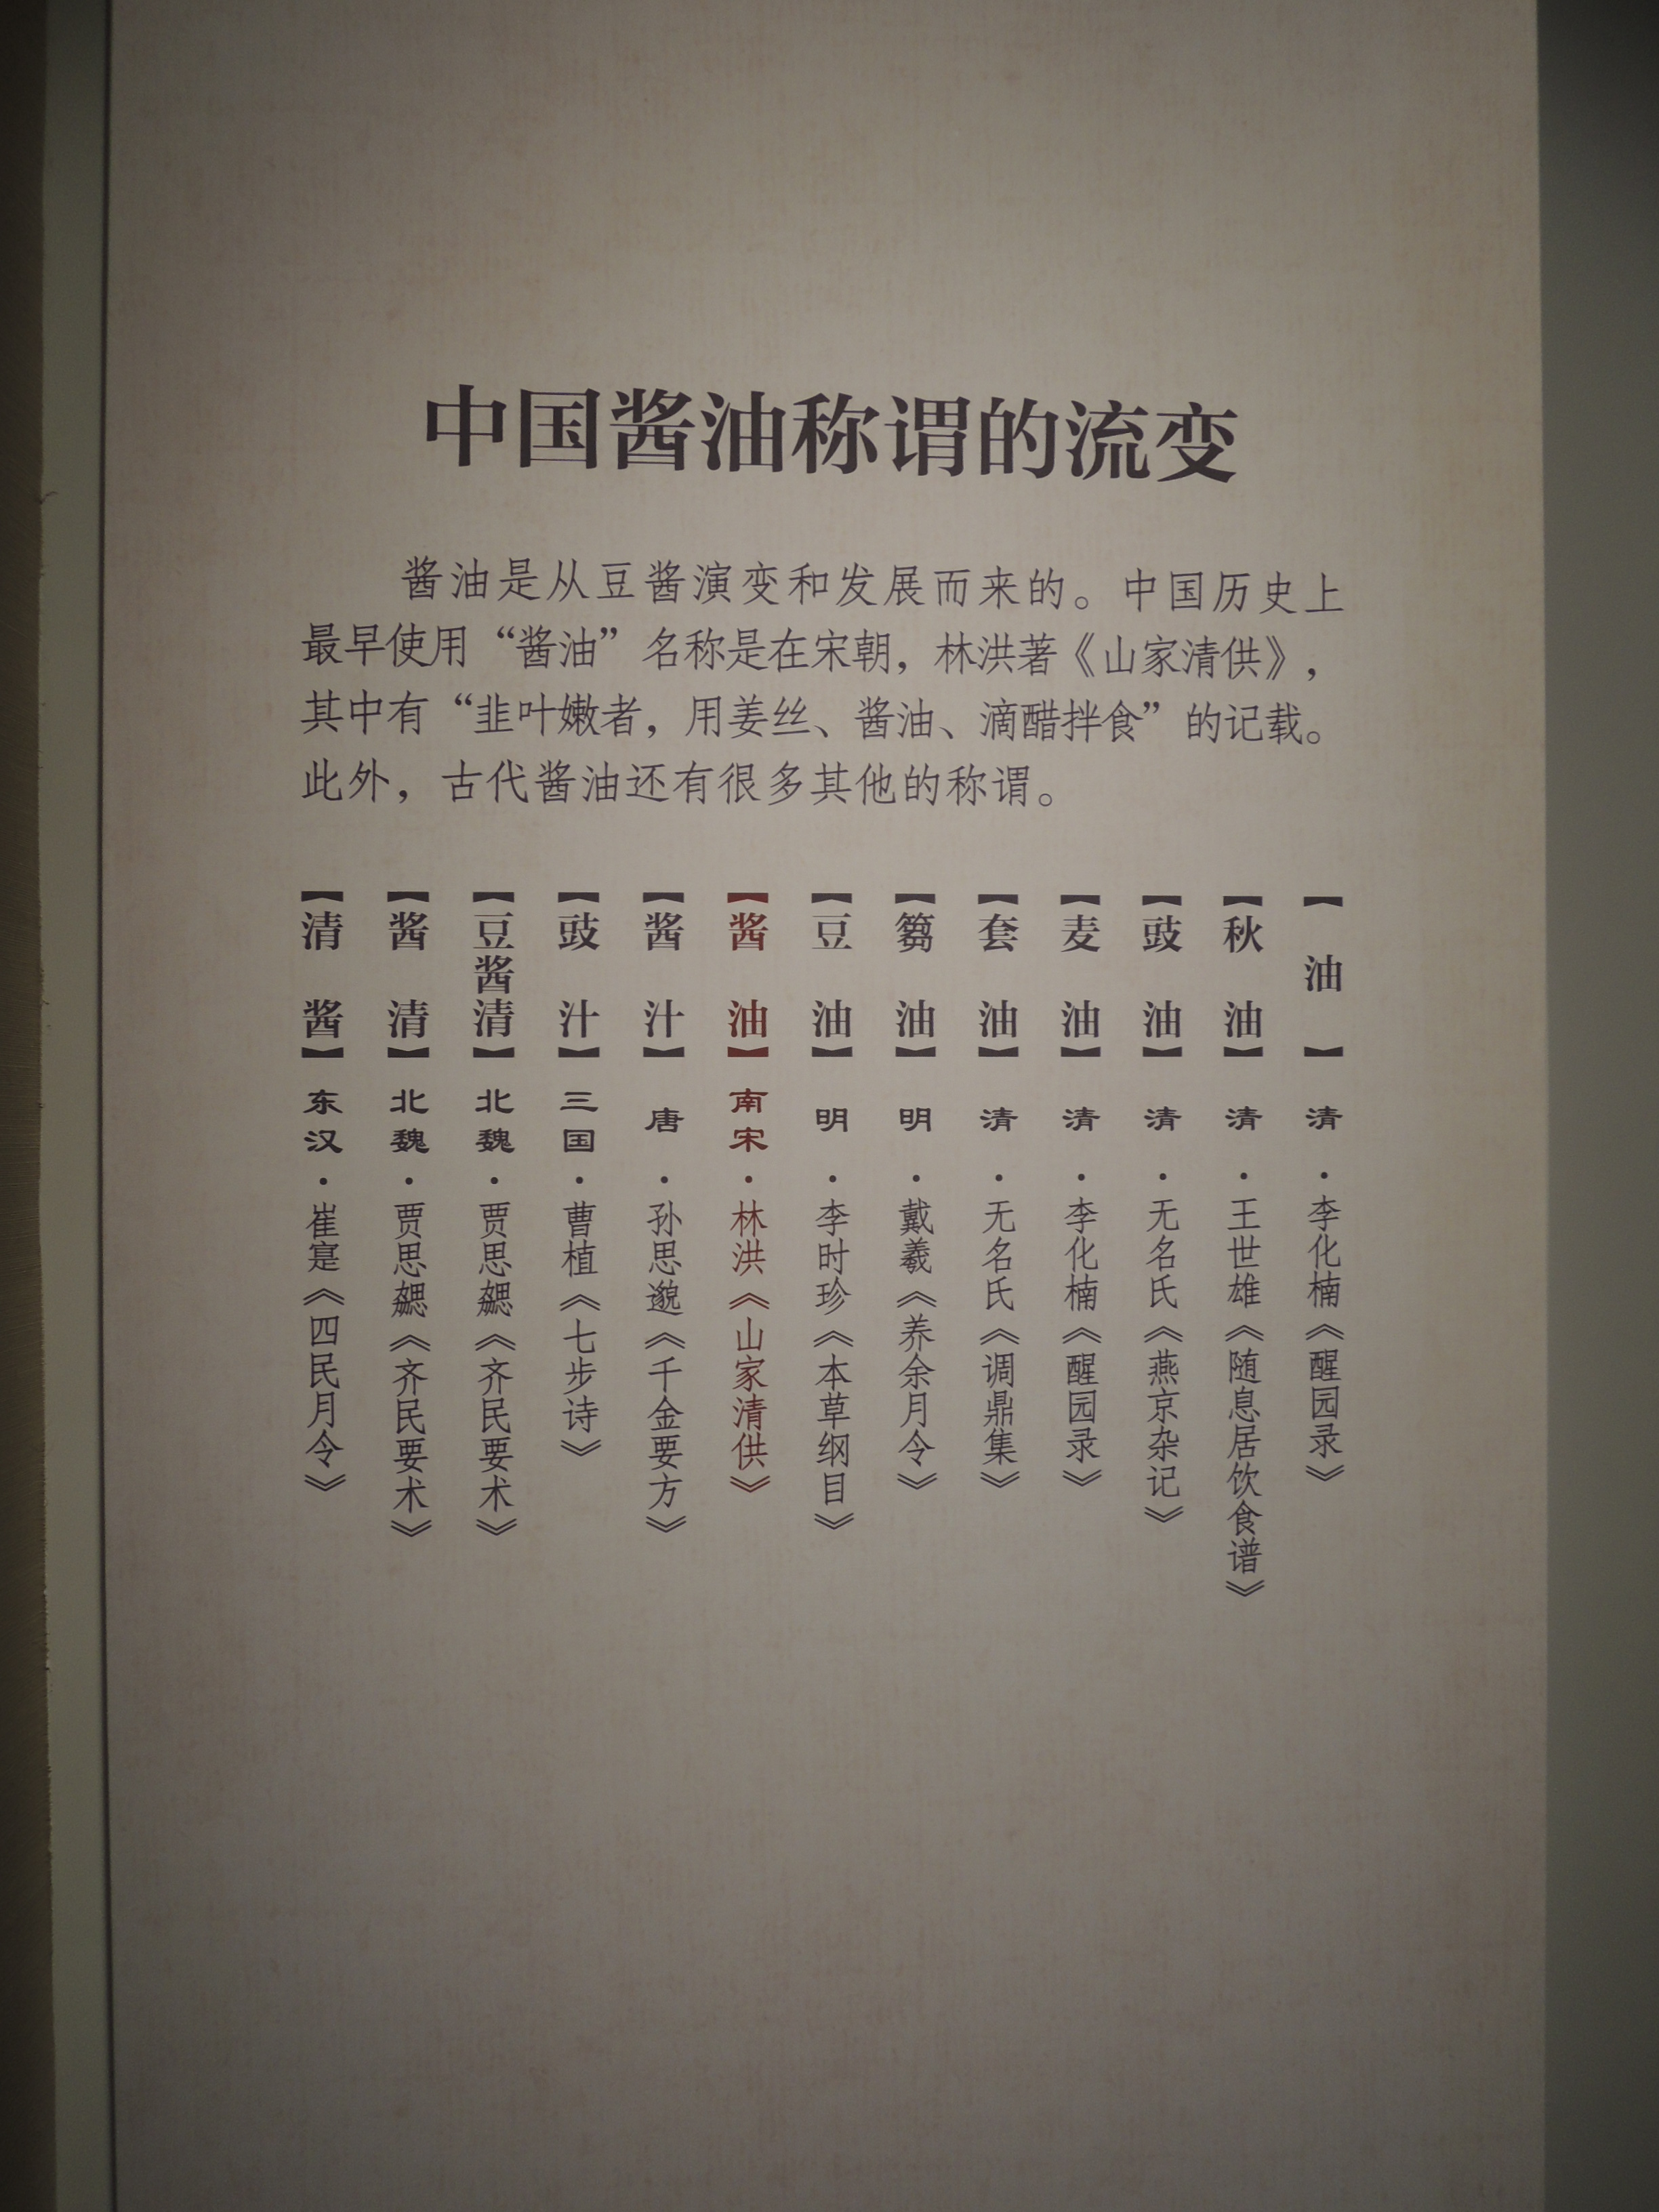 中国酱油称谓的流变
酱油是从豆酱演变和发展而来的。中国历史上
最早使用“酱油”名称是在宋朝，林洪著《山家清供》，
其中有“韭叶嫩者，用姜丝、酱油、滴醋拌食”的记载。
此外，古代酱油还有很多其他的称谓。
【清酱】东汉·崔寔《四民月令》
【酱清】北魏·贾思勰《齐民要术》
【豆酱清】北魏·贾思勰《齐民要术》
【豉汁】三国·曹植《七步诗》
【酱汁】唐·孙思邈《千金要方》
【酱油】南宋·林洪《山家清供》
【豆油】明·李时珍《本草纲目》
【篘油】明·戴羲《养余月令》
【套油】清·无名氏《调鼎集》
【麦油】清·李化楠《醒园录》
【豉油】清·无名氏《燕京杂记》
【秋油】清·王世雄《随息居饮食谱》
【油】清·李化楠《醒园录》